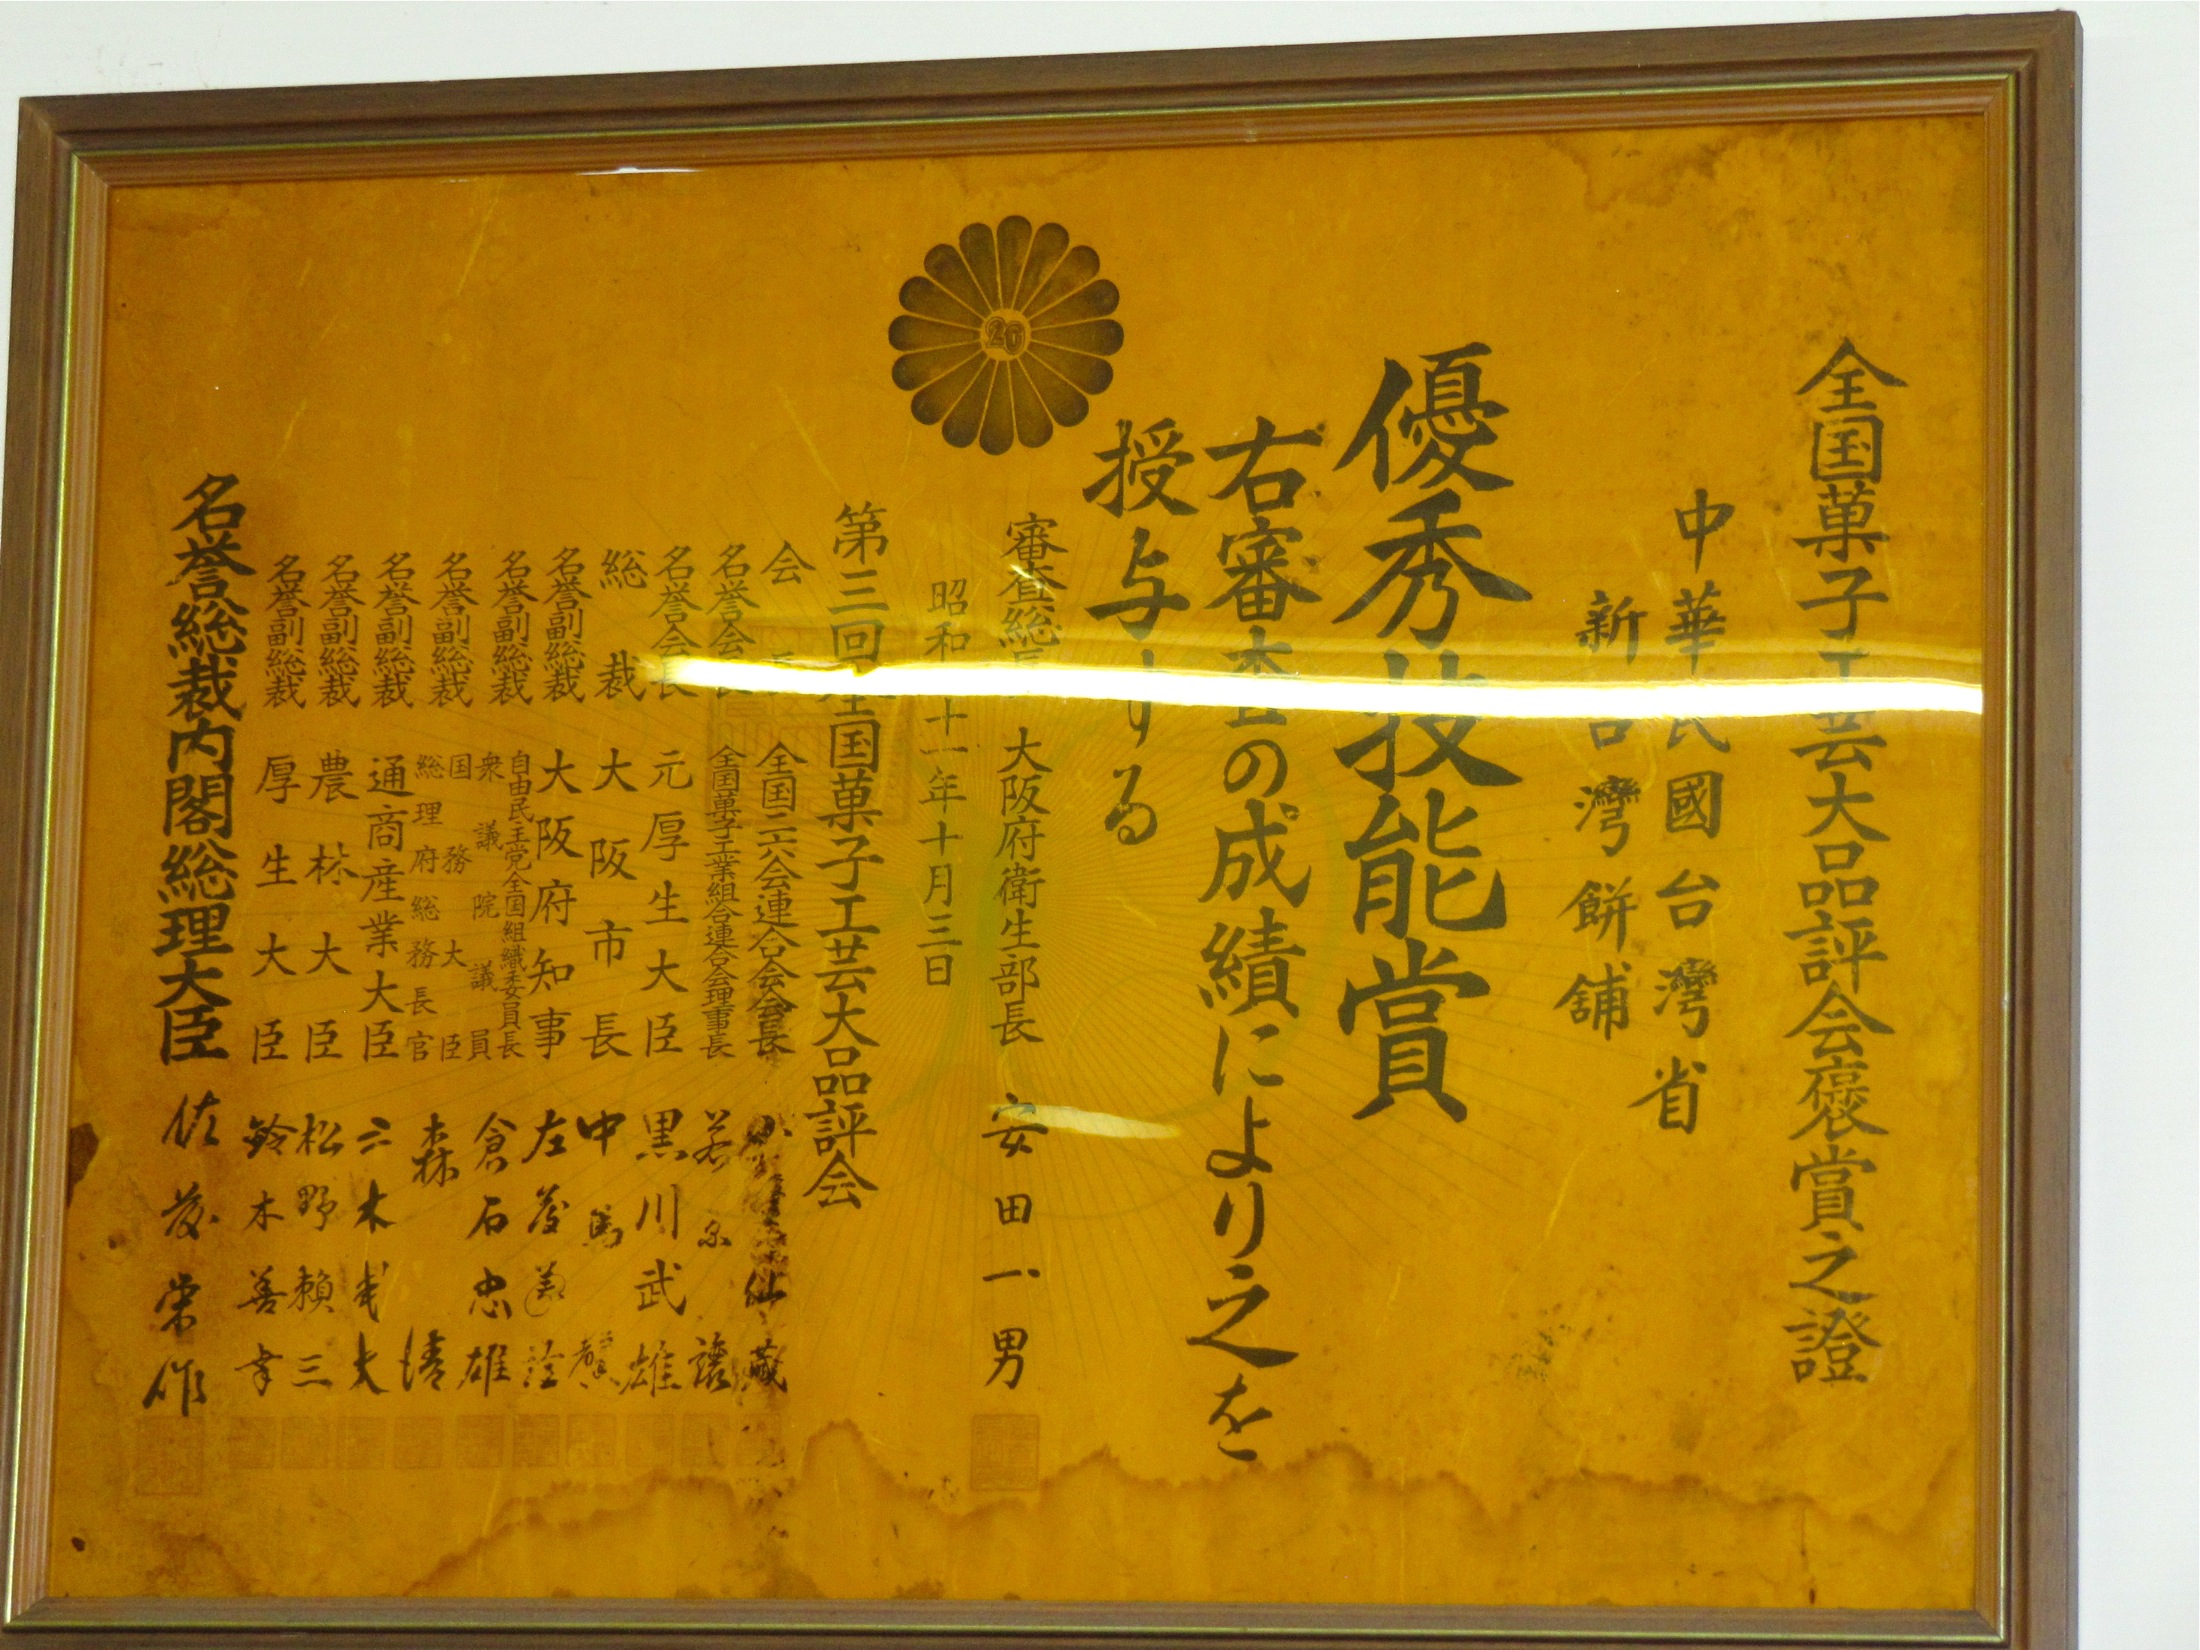 全国菓子工芸大品評会褒賞之證
中華民國台灣省
新台灣餅舗
優秀技能賞
右審査の成績により之を
授与する
20
審査総長 大阪府衛生部長 安田一男
昭和 十一年十月三日
第三回全国菓子工芸大品評会
会長 全国二六会連合会会長 仙蔵
名誉会長 全国菓子工業組合連合会理事長 若 譲
名誉会長 元厚生大臣 黒川武雄
総裁 大阪市長 中馬馨
名誉副総裁 大阪府知事 左藤義詮
名誉副総裁 自由民主党全国組織委員長 衆議院議員 倉石忠雄
名誉副総裁 国務大臣 総理府総務長官 森清
名誉副総裁 通商産業大臣 三木武夫
名誉副総裁 農林大臣 松野頼三
名誉副総裁 厚生大臣 鈴木善幸
名誉総裁内閣総理大臣 佐藤栄作